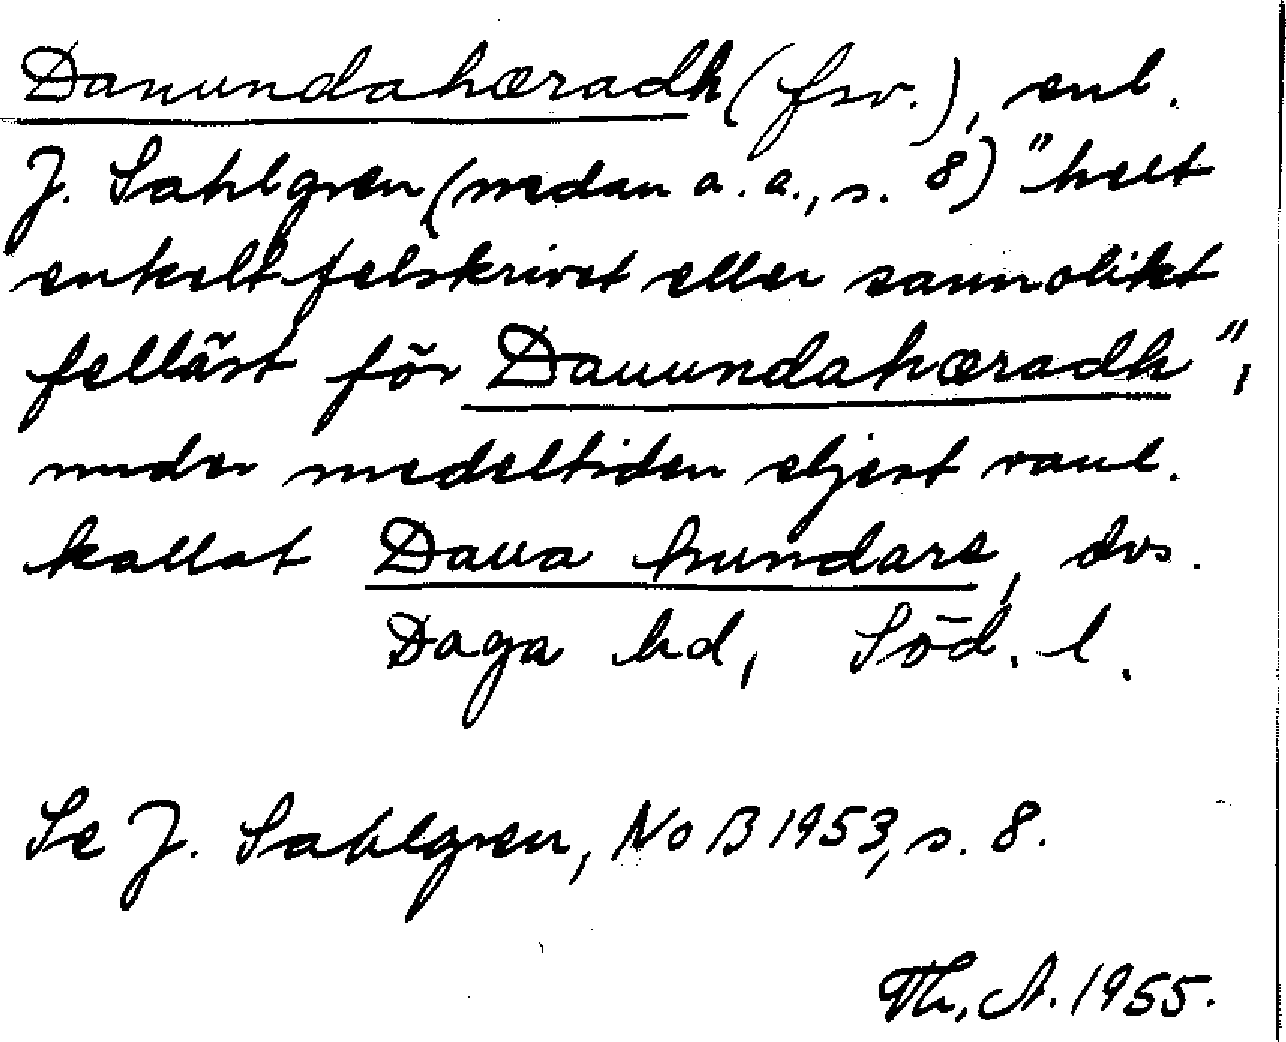 Danundahæradh (fsv.), enl.
J. Sahlgren (nedan a. a., s. 8) "helt
enkelt felskrivet eller sannolikt
felläst för Dauundahæradh",
under medeltiden eljest vanl.
kallat Daua hundare, dvs.
Daga hd, Söd. l.
Se J. Sahlgren, NoB 1953, s. 8.
Th. A. 1955.